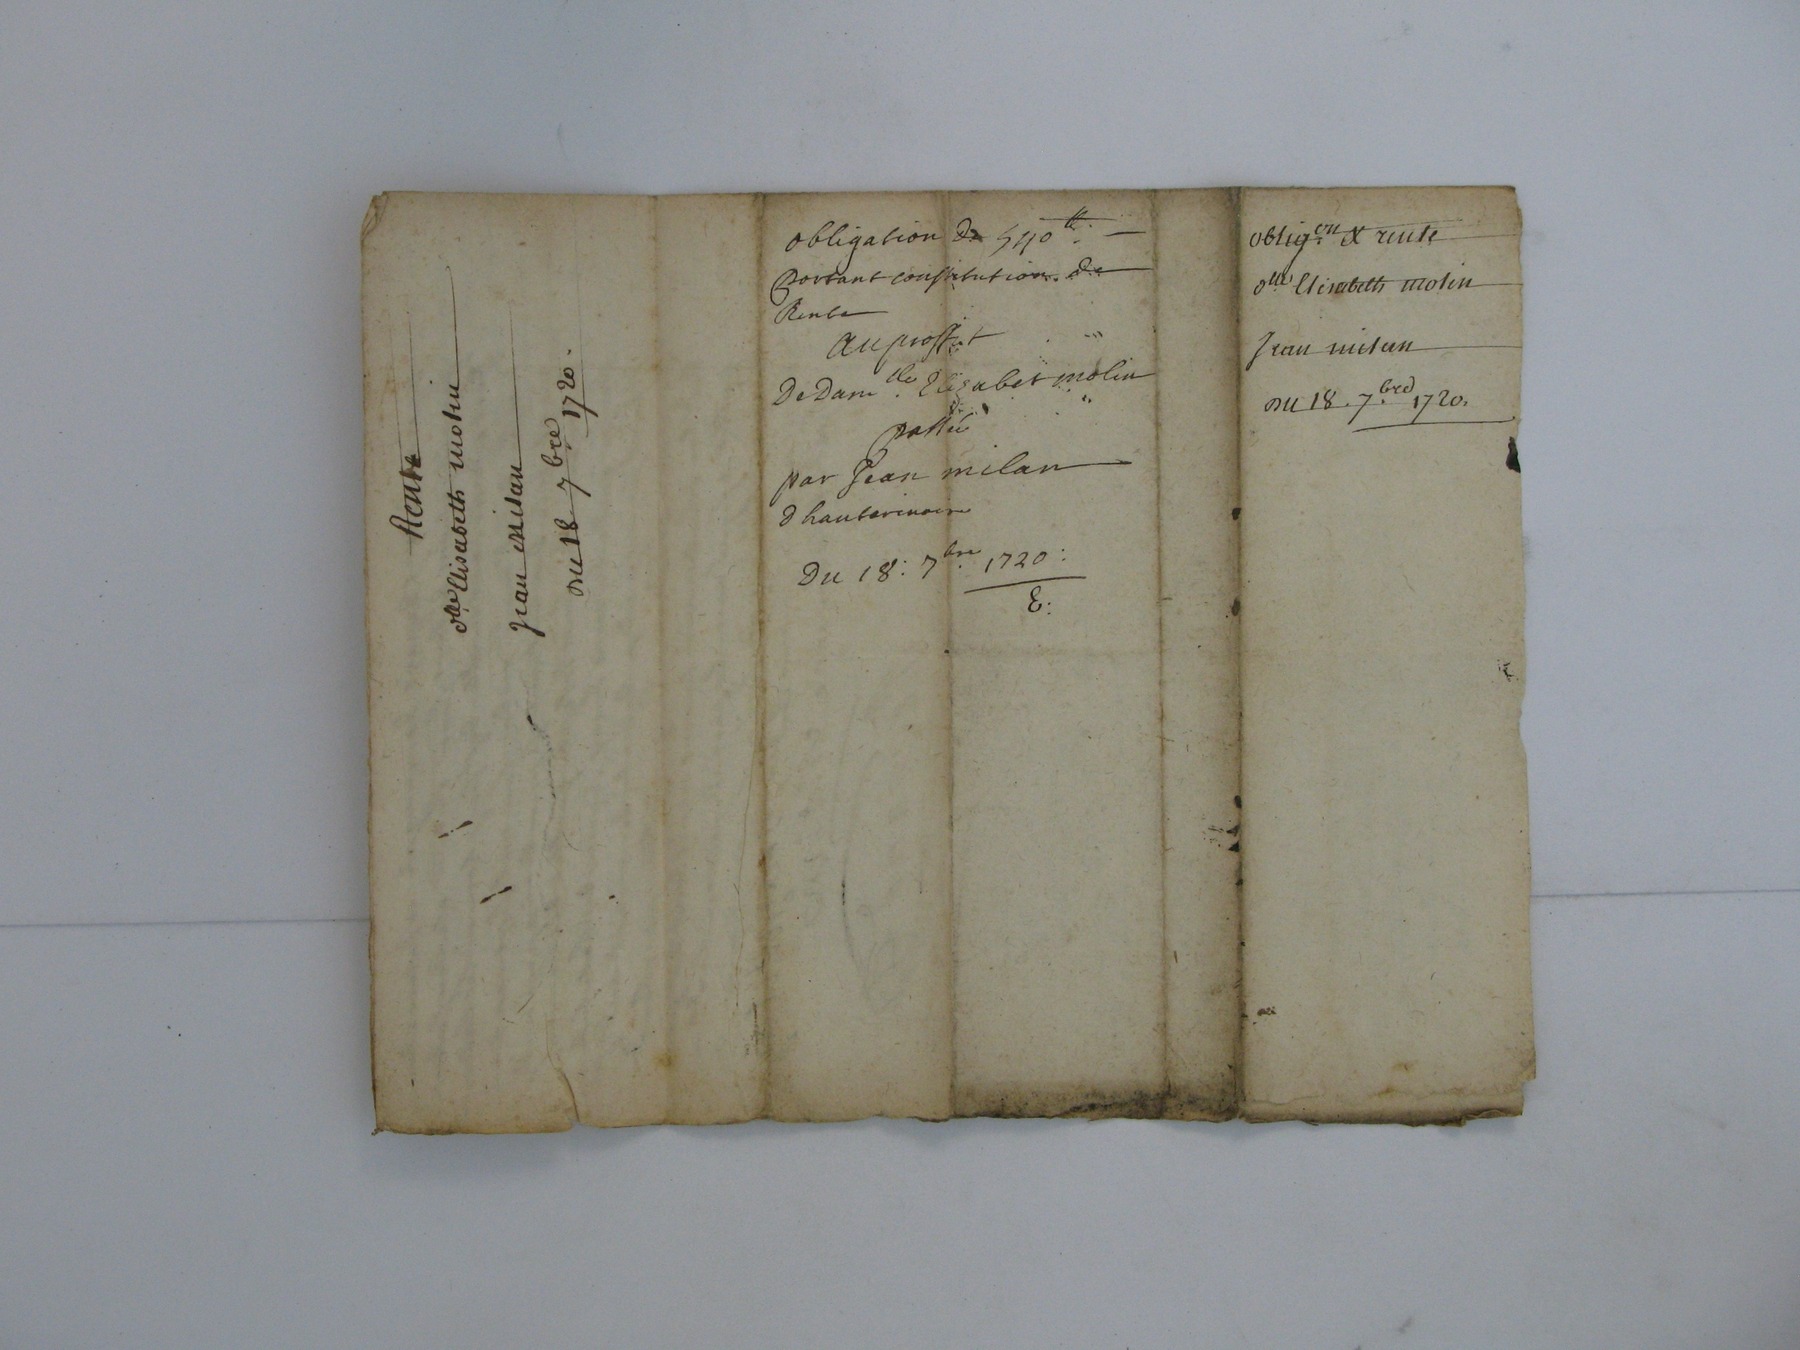 Rente
dlle Elisabeth molin
Jean Milan
du 18 7bre 1720.
obligation de 540 tt
portant constitution de
Rente
au proffit
De Damlle Elizabet molin
passée
par Jean milan
d hauterivoire
Du 18: 7bre 1720:
E:
obligon & rente
dlle Elisabeth molin
Jean milan
du 18. 7bre 1720.